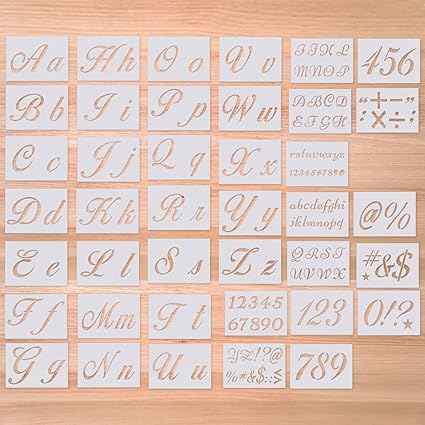 Aa
Hh
Oo
Vv
IJKL
MNOP
456
Bb
Ii
Pp
Ww
ABCD
EFGH
"+−"
:×÷;
Cc
Jj
Qq
Xx
rstuvwxyz
1234567890
Dd
Kk
Rr
Yy
abcdefghi
jklmnopq
@%
Ee
Ll
Ss
Zz
QRST
UVWX
#&$
Ff
Mm
Tt
12345
67890
123
0!?
Gg
Nn
Uu
YZ!?@
789